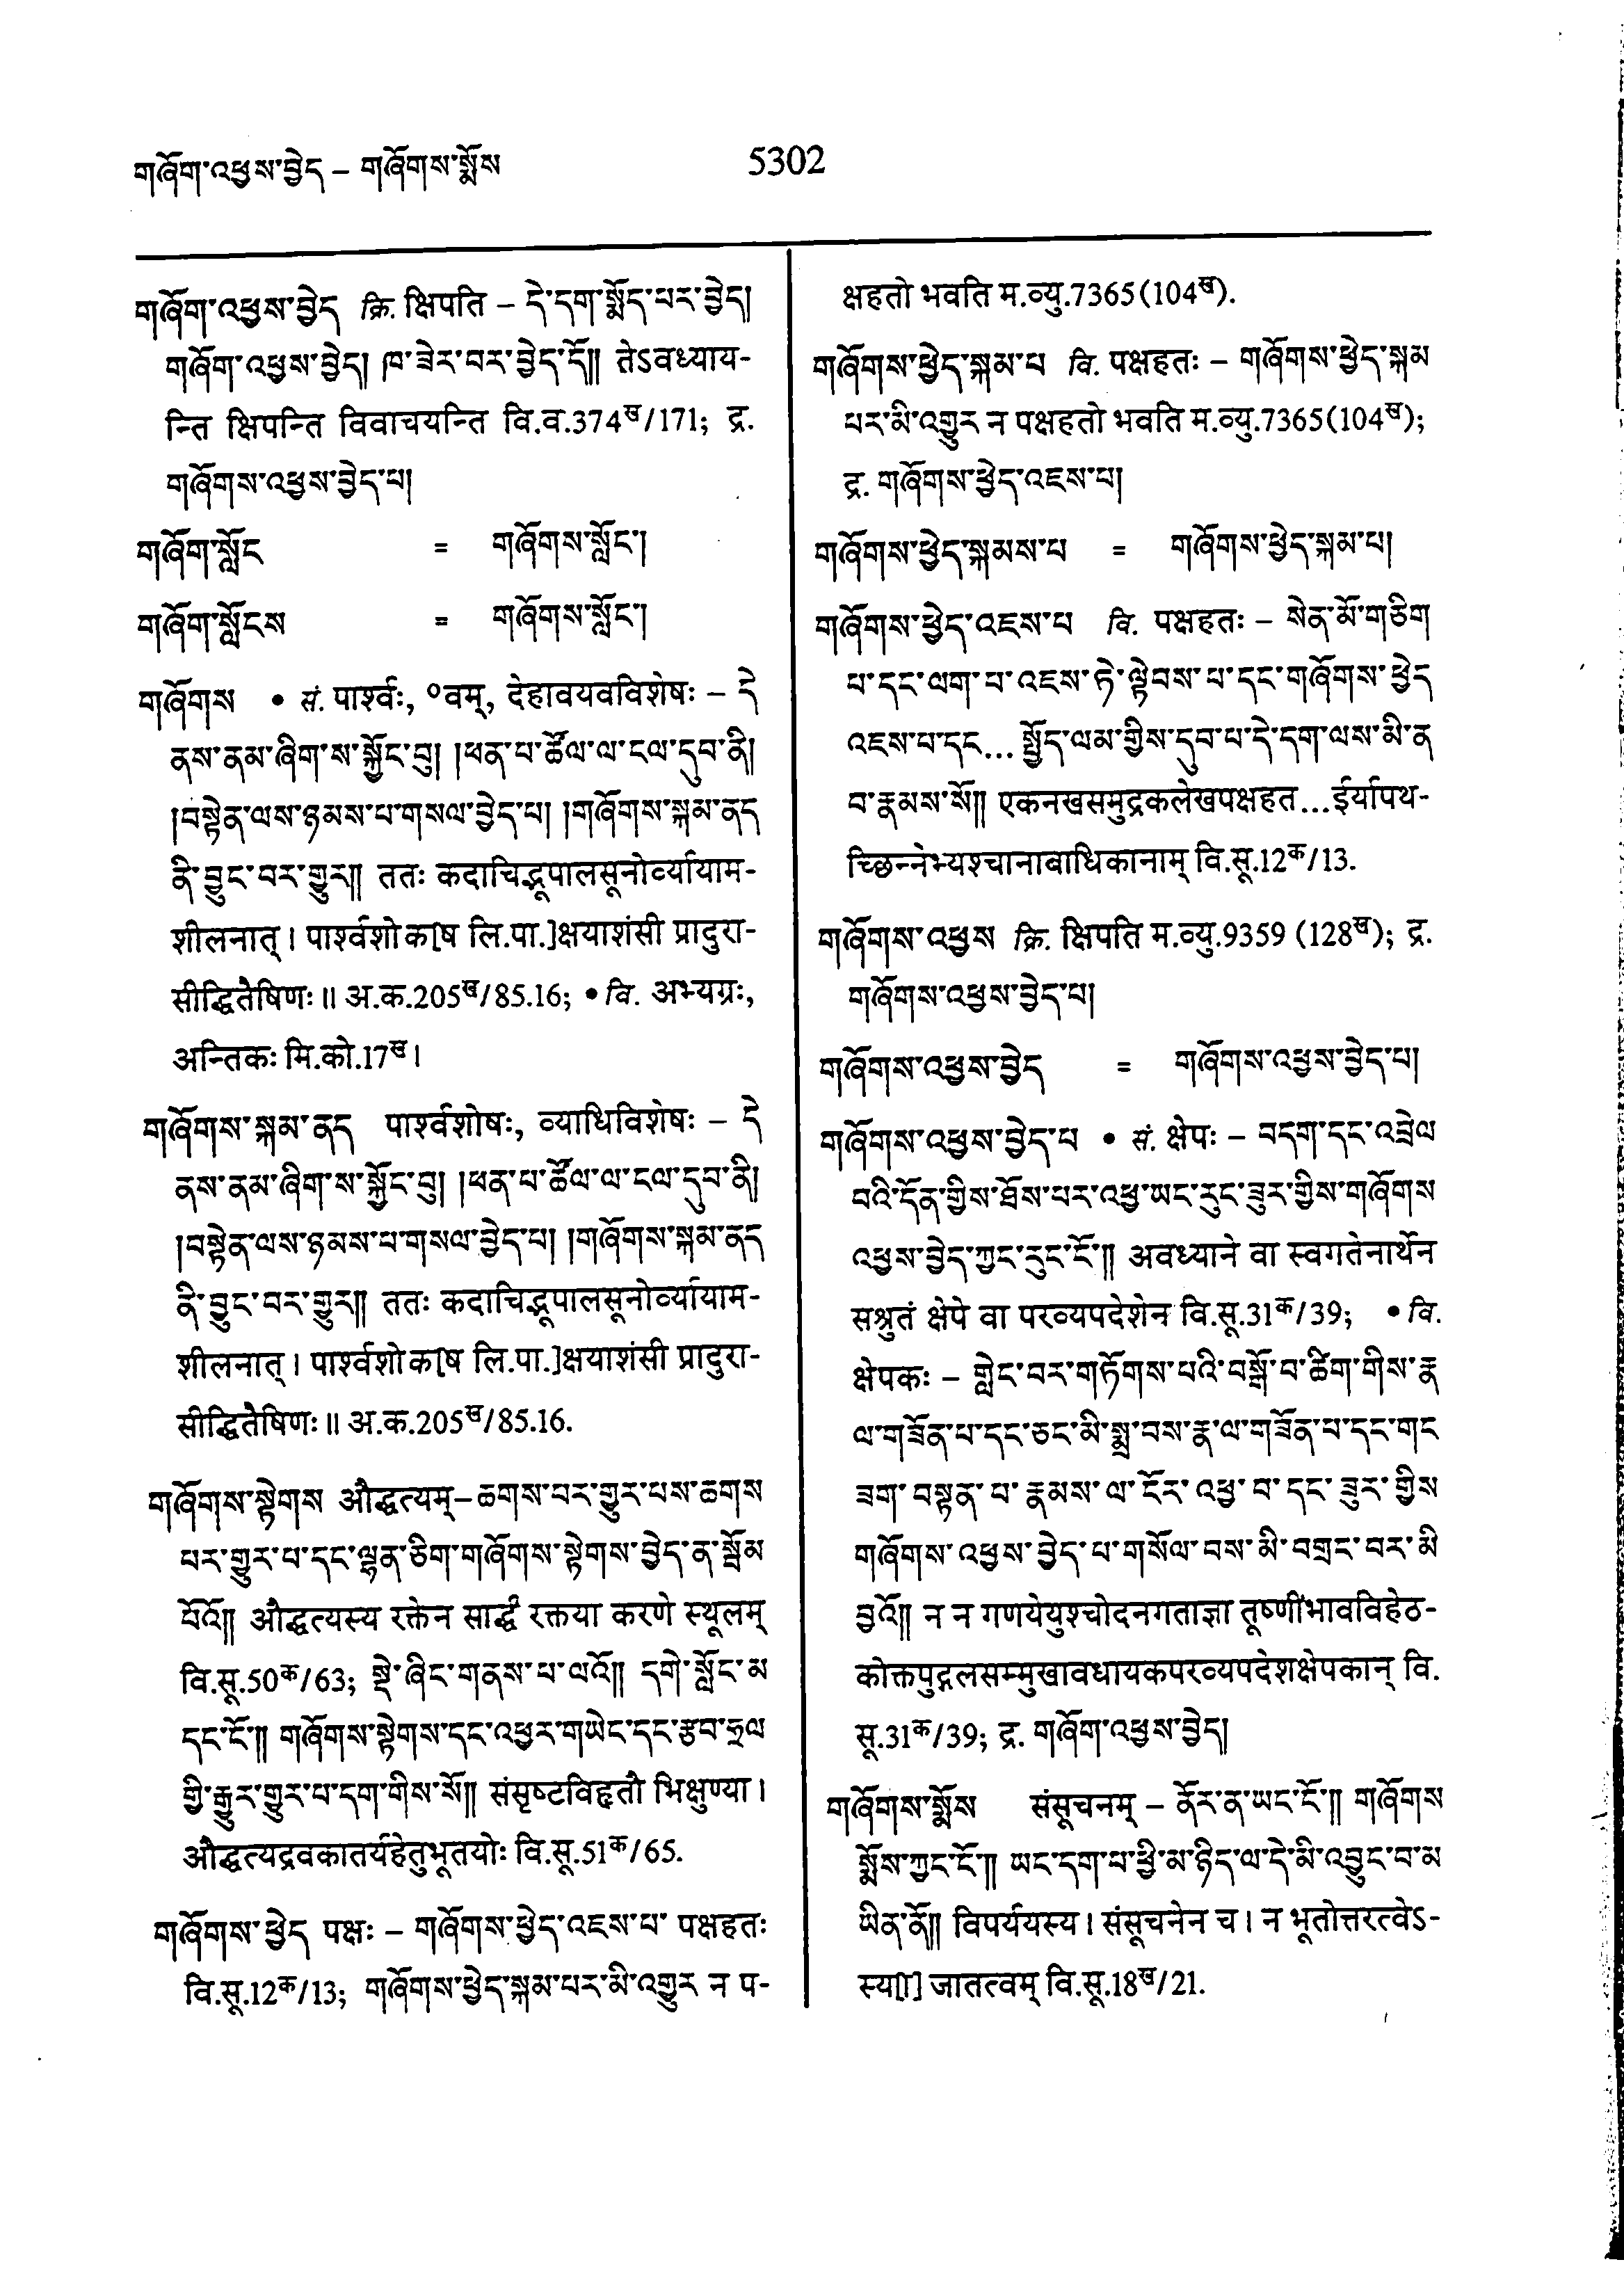 གཞོག་འཕྱས་བྱེད – གཞོགས་སློས
5302
གཞོག་འཕྱས་བྱེད क्रि. क्षिपति – དེ་དག་སྨོད་པར་བྱེད།
གཞོག་འཕྱས་བྱེད། ཁ་ཟེར་བར་བྱེད་དོ།། तेऽवध्याय-
न्ति क्षिपन्ति विवाचयन्ति वि.व.374ख/171; द्र.
གཞོགས་འཕྱས་བྱེད་པ།
གཞོག་སློང = གཞོགས་སློང་།
གཞོག་སློངས = གཞོགས་སློང་།
གཞོགས • सं. पार्श्वः, ०वम्, देहावयवविशेषः – དེ
ནས་ནམ་ཞིག་ས་སྐྱོང་བུ། །ཕན་པ་ཚོལ་ལ་ངལ་དུབ་ནི།
།བསྟེན་ལས་ཉམས་པ་གསལ་བྱེད་པ། །གཞོགས་སྐམ་ནད
ནི་བྱུང་བར་གྱུར།། ततः कदाचिद्भूपालसूनोर्व्यायाम-
शीलनात्। पार्श्वशोक[ष लि.पा.]क्षयाशंसी प्रादुरा-
सीद्धितैषिणः॥ अ.क.205ख/85.16; • वि. अभ्यग्रः,
अन्तिकः मि.को.17ख।
གཞོགས་སྐམ་ནད पार्श्वशोषः, व्याधिविशेषः – དེ
ནས་ནམ་ཞིག་ས་སྐྱོང་བུ། །ཕན་པ་ཚོལ་ལ་ངལ་དུབ་ནི།
།བསྟེན་ལས་ཉམས་པ་གསལ་བྱེད་པ། །གཞོགས་སྐམ་ནད
ནི་བྱུང་བར་གྱུར།། ततः कदाचिद्भूपालसूनोर्व्यायाम-
शीलनात्। पार्श्वशोक[ष लि.पा.]क्षयाशंसी प्रादुरा-
सीद्धितैषिणः॥ अ.क.205ख/85.16.
གཞོགས་སྟེགས औद्धत्यम्– ཆགས་པར་གྱུར་པས་ཆགས
པར་གྱུར་པ་དང་ལྷན་ཅིག་གཞོགས་སྟེགས་བྱེད་ན་སྦོམ
པོའོ།། औद्धत्यस्य रक्तेन सार्द्धं रक्तया करणे स्थूलम्
वि.सू.50क/63; སྡེ་ཞིང་གནས་པ་ལའོ།། དགེ་སློང་མ
དང་ངོ་།། གཞོགས་སྟེགས་དང་འཕྱར་གཡེང་དང་རྩབ་ཧྲལ
གྱི་རྒྱུར་གྱུར་པ་དག་གིས་སོ།། संसृष्टविहृतौ भिक्षुण्या।
औद्धत्यद्रवकातर्यहेतुभूतयोः वि.सू.51क/65.
གཞོགས་ཕྱེད पक्षः – གཞོགས་ཕྱེད་འཇས་པ་ पक्षहतः
वि.सू.12क/13; གཞོགས་ཕྱེད་སྐམ་པར་མི་འགྱུར न प-
क्षहतो भवति म.व्यु.7365(104ख).
གཞོགས་ཕྱེད་སྐམ་པ वि. पक्षहतः – གཞོགས་ཕྱེད་སྐམ
པར་མི་འགྱུར न पक्षहतो भवति म.व्यु.7365(104ख);
द्र. གཞོགས་ཕྱེད་འཇས་པ།
གཞོགས་ཕྱེད་སྐམས་པ = གཞོགས་ཕྱེད་སྐམ་པ།
གཞོགས་ཕྱེད་འཇས་པ वि. पक्षहतः – སེན་མོ་གཅིག
པ་དང་ལག་པ་འཇས་ཏེ་ལྟེབས་པ་དང་གཞོགས་ཕྱེད
འཇས་པ་དང... སྤྱོད་ལམ་གྱིས་དུབ་པ་དེ་དག་ལས་མི་ན
བ་རྣམས་སོ།། एकनखसमुद्रकलेखपक्षहत...ईर्यापथ-
च्छिन्नेभ्यश्चानाबाधिकानाम् वि.सू.12क/13.
གཞོགས་འཕྱས क्रि. क्षिपति म.व्यु.9359 (128ख); द्र.
གཞོགས་འཕྱས་བྱེད་པ།
གཞོགས་འཕྱས་བྱེད = གཞོགས་འཕྱས་བྱེད་པ།
གཞོགས་འཕྱས་བྱེད་པ • सं. क्षेपः – བདག་དང་འབྲེལ
བའི་དོན་གྱིས་ཐོས་པར་འཕྱ་ཡང་རུང་ཟུར་གྱིས་གཞོགས
འཕྱས་བྱེད་ཀྱང་རུང་ངོ་།། अवध्याने वा स्वगतेनार्थेन
सश्रुतं क्षेपे वा परव्यपदेशेन वि.सू.31क/39; • वि.
क्षेपकः – གླེང་བར་གཏོགས་པའི་བསྒོ་བ་ཚིག་གིས་རྣ
ལ་གཟོན་པ་དང་ཅང་མི་སྨྲ་བས་རྣ་ལ་གཟོན་པ་དང་གང
ཟག་བསྟན་པ་རྣམས་ལ་ངོར་འཕྱ་བ་དང་ཟུར་གྱིས
གཞོགས་འཕྱས་བྱེད་པ་གསོལ་བས་མི་བགྲང་བར་མི
བྱའོ།། न न गणयेयुश्चोदनगताज्ञा तूष्णींभावविहेठ-
कोक्तपुद्गलसम्मुखावधायकपरव्यपदेशक्षेपकान् वि.
सू.31क/39; द्र. གཞོག་འཕྱས་བྱེད།
གཞོགས་སློས संसूचनम् – ནོར་ན་ཡང་ངོ་།། གཞོགས
སློས་ཀྱང་ངོ་།། ཡང་དག་པ་ཕྱི་མ་ཉིད་ལ་དེ་མི་འབྱུང་བ་མ
ཡིན་ནོ།། विपर्ययस्य। संसूचनेन च। न भूतोत्तरत्वेऽ-
स्य[।] जातत्वम् वि.सू.18ख/21.